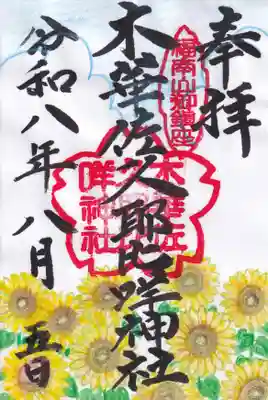 奉拝
福南山御鎮座
木華佐久耶咩神社
木華佐久耶咩神社
令和八年八月五日